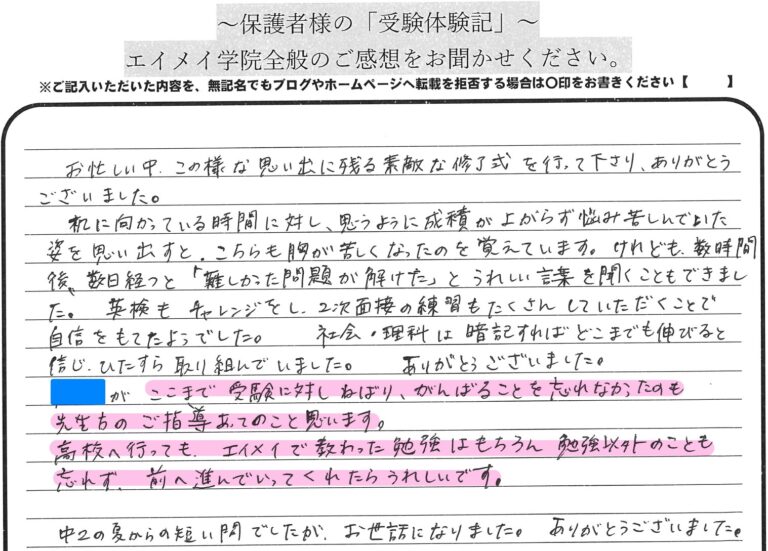 ～保護者様の「受験体験記」～
エイメイ学院全般のご感想をお聞かせください。
※ご記入いただいた内容を、無記名でもブログやホームページへ転載を拒否する場合は〇印をお書きください【　　】
お忙しい中、この様な思い出に残る素敵な修了式を行って下さり、ありがとう
ございました。
机に向かっている時間に対し、思うように成積が上がらず悩み苦しんでいた
姿を思い出すと、こちらも胸が苦しくなったのを覚えています。けれども、数時間
後、数日経つと「難しかった問題が解けた」とうれしい言葉を聞くこともできまし
た。　英検もチャレンジをし、2次面接の練習もたくさんしていただくことで
自信をもてたようでした。　社会・理科は暗記すればどこまでも伸びると
信じ、ひたすら取り組んでいました。　ありがとうございました。
が ここまで受験に対しねばり、がんばることを忘れなかったのも
先生方のご指導あってのこと思います。
高校へ行っても、エイメイで教わった勉強はもちろん勉強以外のことも
忘れず、前へ進んでいってくれたらうれしいです。
中2の夏からの短い間でしたが、お世話になりました。　ありがとうございました。